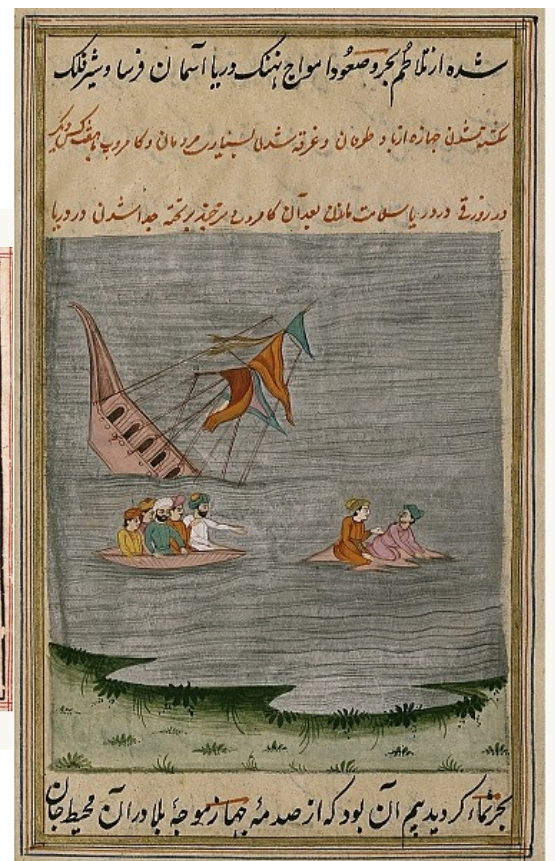 شده از تلاطم بحر و صعود امواج نهنک دریا آسمان فرسا و شیر فلک
شدن جهاز از باد طوفان و غرقه شدن بسیاری مردمان و کامروپ
در زورقی در دریا سلامت ماندن بعد آن کامروپ بر تخته جدا شدن در دریا
کردیدیم آن بود که از صدمهٔ چهار موجهٔ بلا در آن محیط جان